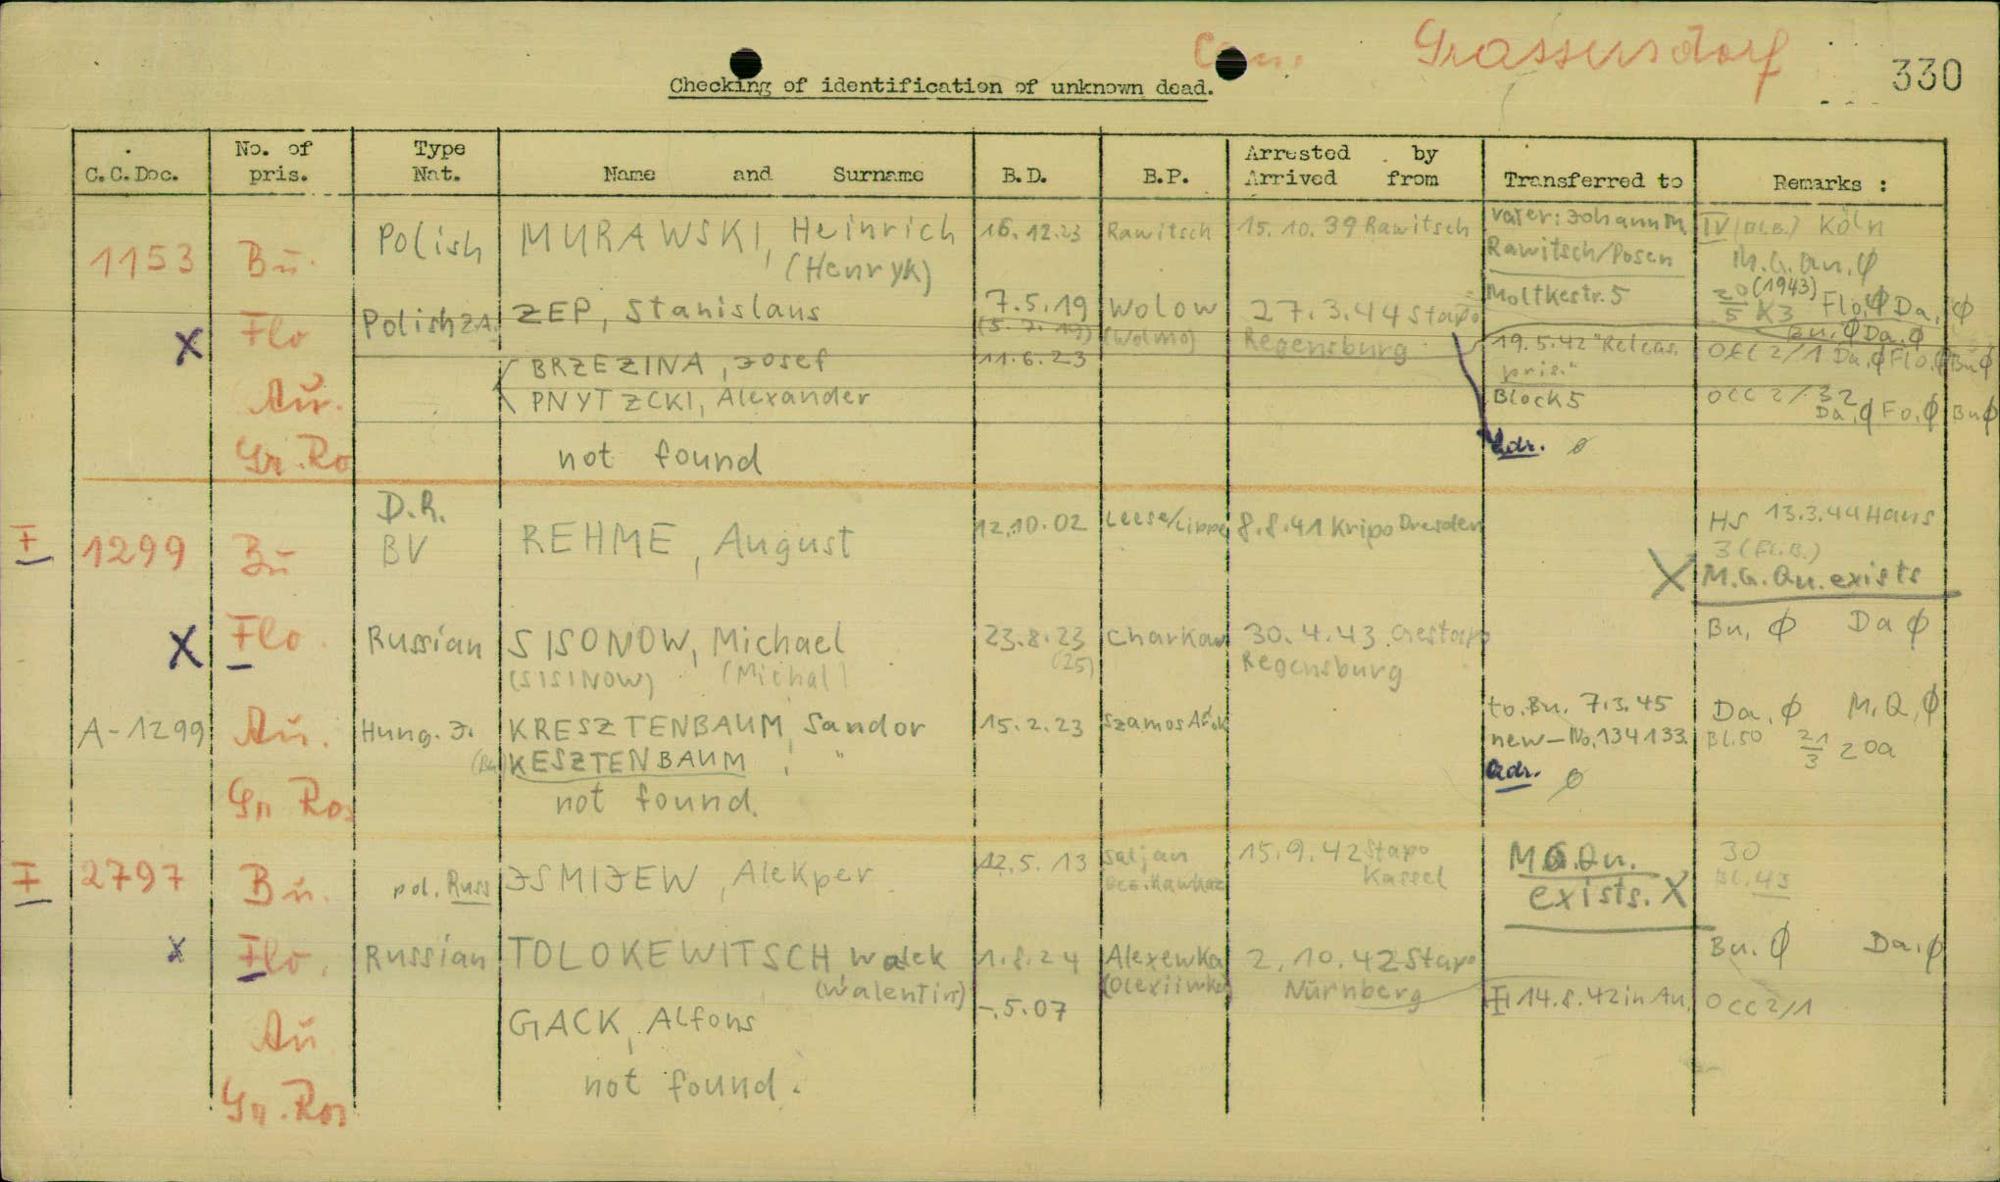 Grassersdorf
330
Checking of identification of unknown dead.
C.C.Doc. No. of pris. Type Nat. Name and Surname B.D. B.P. Arrested by Arrived from Transferred to Remarks :
1153 Bu. Polish MURAWSKI, Heinrich (Henryk) 16.12.23 Rawitsch 15.10.39 Rawitsch Vater: Johann M. Rawitsch/Posen Moltkestr. 5 IV (Bl.8.) Köln M.G.Qu. ϕ 20/5 (1943) K3
X Flo Polish ZA. ZEP, Stanislaus 7.5.19 (5.7.19) Wolow (Wolmo) 27.3.44 Stapo Regensburg Flo, ϕ Da, ϕ Bu, ϕ Da. ϕ
Au. BRZEZINA, Josef 11.6.23 19.5.42 "Releas. pris." OCC 2/1 Da, ϕ Flo, ϕ Bu ϕ
PNYTZCKI, Alexander Block 5 OCC 2/32 Da, ϕ Fo, ϕ Bu ϕ
Gr. Ro not found Adr. ϕ
I 1299 Bu D.R. BV REHME, August 12.10.02 Leese/Lippe 8.8.41 Kripo Dresden HS 13.3.44 Haus 3 (Fl.B.)
X M.G.Qu. exists
X Flo. Russian SISONOW, Michael (SISINOW) (Michal) 23.8.23 (25) Charkow 30.4.43 Gestapo Regensburg Bu, ϕ Da ϕ
A-1299 Au. Hung. J. KRESZTENBAUM, Sandor 15.2.23 to. Bu. 7.3.45 Da, ϕ M.Q, ϕ
(Bu) KESZTENBAUM, " new-No. 134133 Bl. 50 21/3 20a
Gr Ros not found. Adr. ϕ
I 2797 Bu. pol. Russ JSMIJEW, Alekper 12.5.13 Saljan Bez. Kawkaz 15.9.42 Stapo Kassel M.G.Qu. exists. X 30 Bl. 43
x Flo. Russian TOLOKEWITSCH, Walek (Walentin) 1.8.24 Alexewka (Olexiiwka) 2.10.42 Stapo Nürnberg Bu. ϕ Da, ϕ
Au GACK, Alfons -.5.07 14.8.42 in Au. OCC 2/1
Gr. Ros not found.